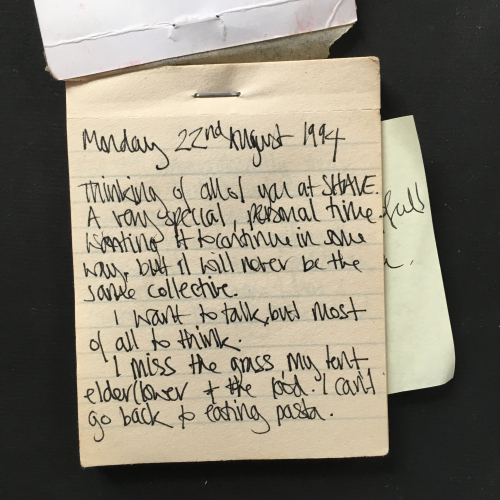 Monday 22nd August 1994
Thinking of all of you at SHAVE.
A very special, personal time.
Wanting it to continue in some
way, but it will never be the
same collective.
I want to talk, but most
of all to think.
I miss the grass, my tent
elderflower + the food. I can't
go back to eating pasta.
full